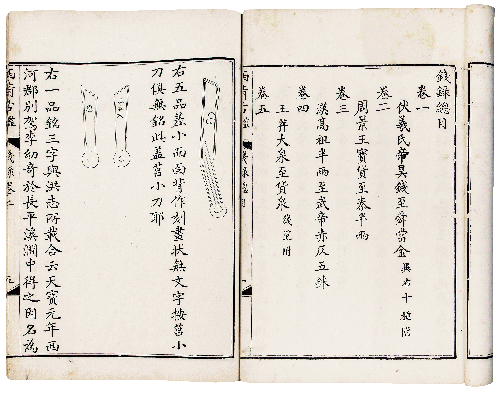 錢錄總目
卷一
伏羲氏帝昊錢至舜當金
卷二
周景王寶貨至秦半兩
卷三
漢高祖半兩至武帝赤仄五銖
卷四
王莽大泉至貨泉
卷五
西清古鑑
錢錄總目
右五品莒小而面背作刻畫狀無文字按莒小
刀俱無銘此蓋莒小刀耶
右一品銘三字與洪志所載合云天寶元年西
河郡別駕李幼奇於長平溪澗中得之因名為
西清古鑑